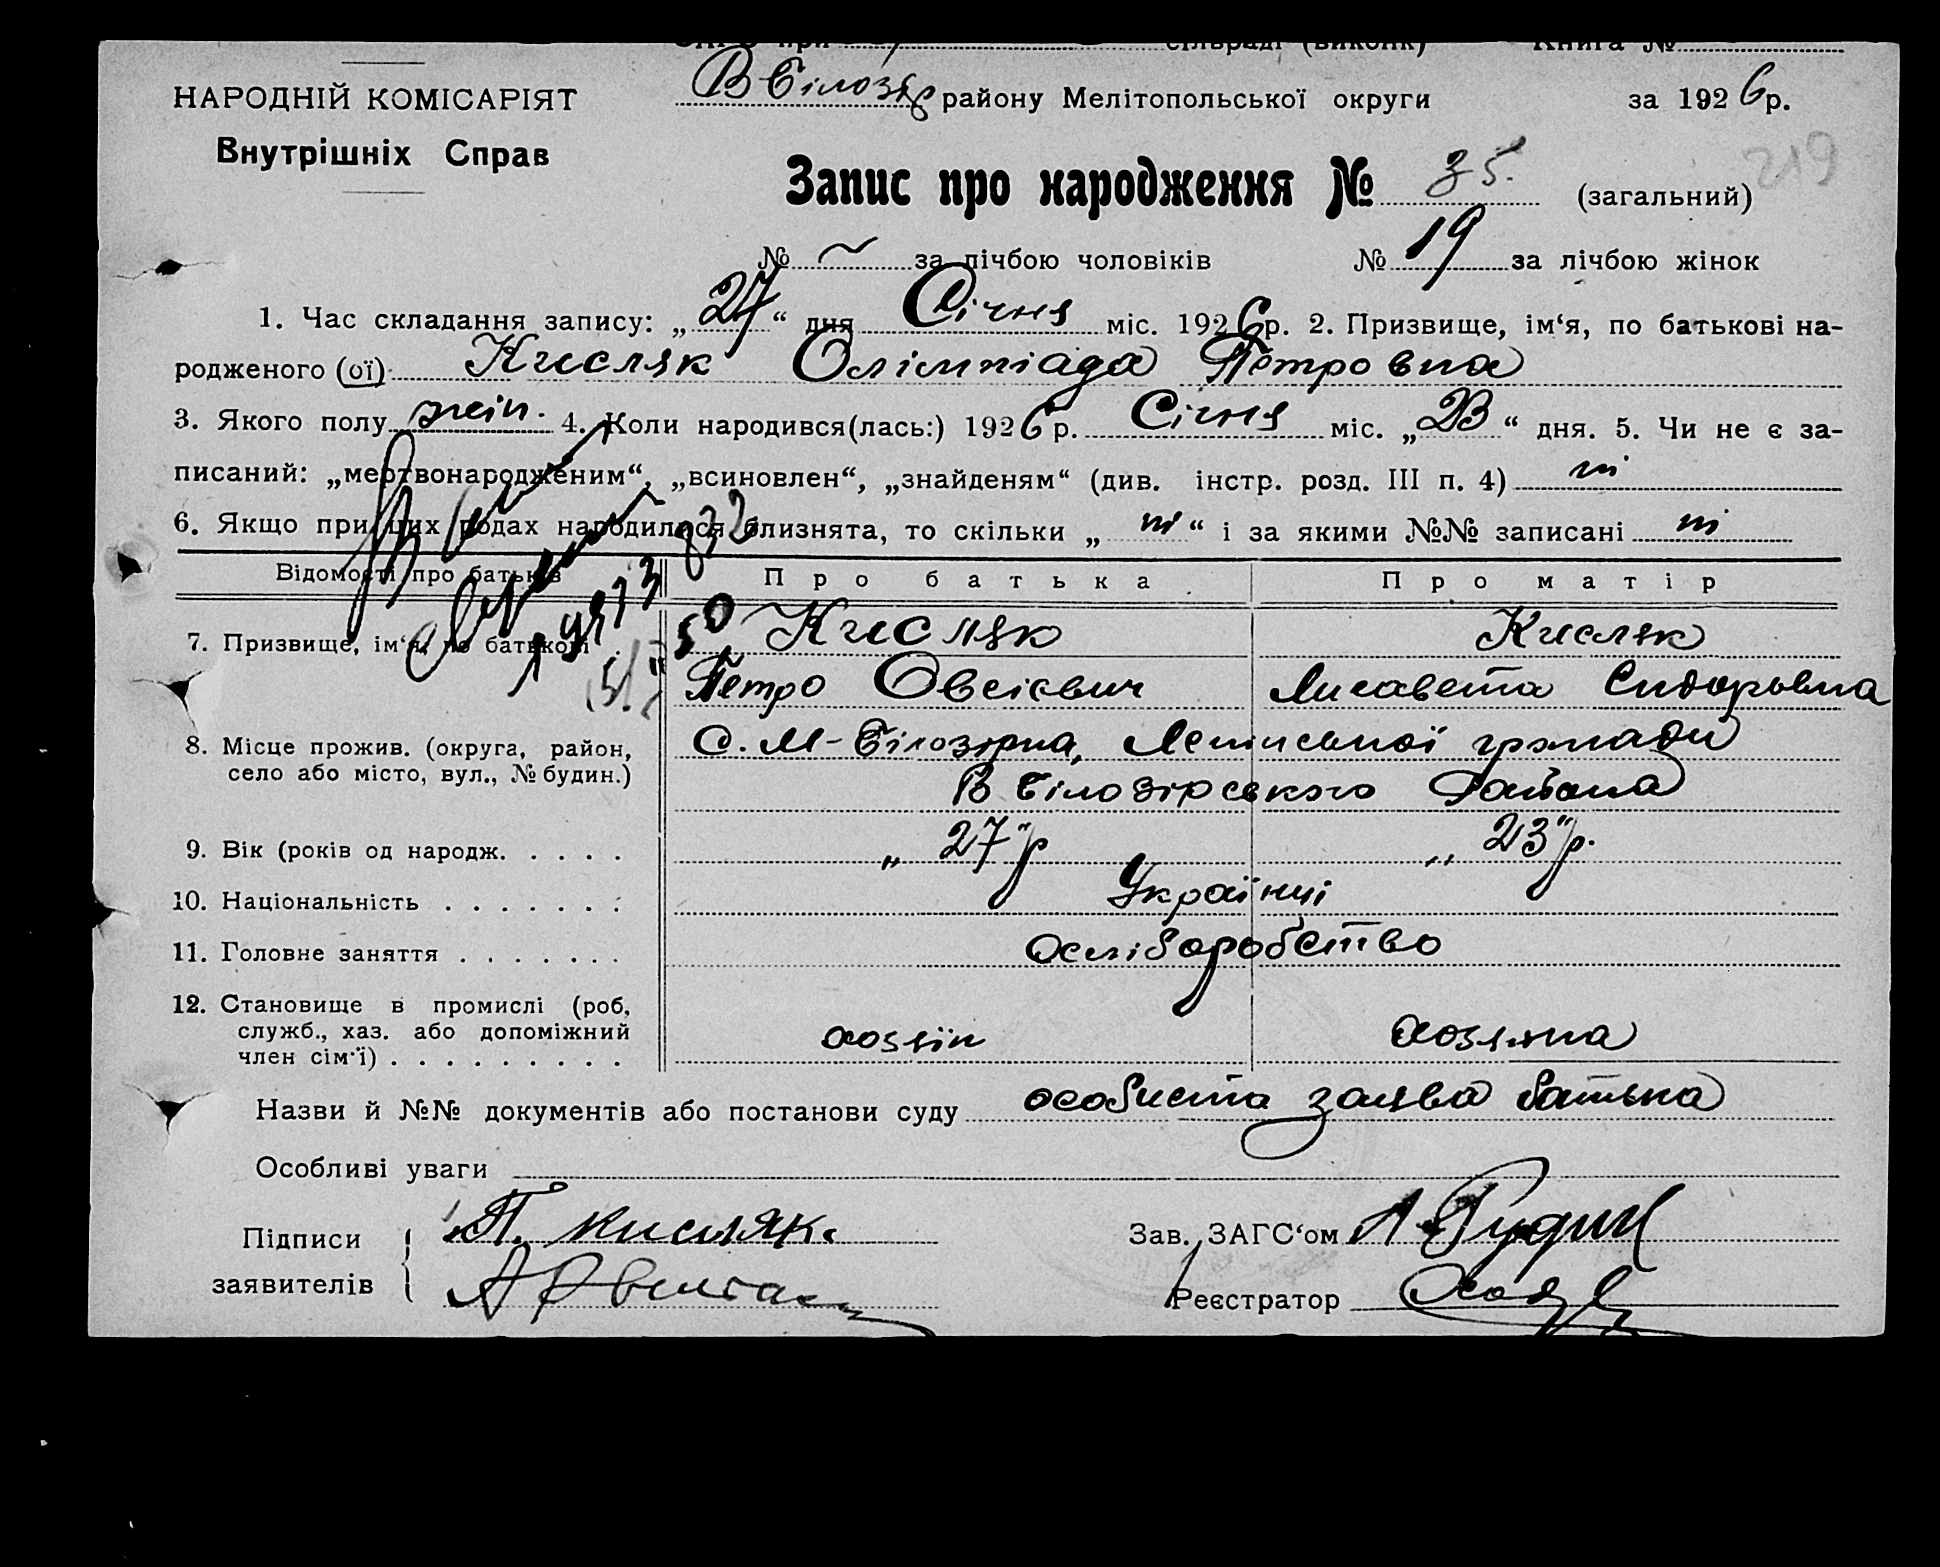 сільраді (виконк) Книга №
НАРОДНІЙ КОМІСАРІЯТ
Внутрішніх Справ
В Білозір району Мелітопольської округи за 1926 р.
219
Запис про народження № 35. (загальний)
№ ~ за лічбою чоловіків № 19 за лічбою жінок
1. Час складання запису: „27“ дня Січня міс. 1926 р. 2. Призвище, ім‘я, по батькові на-
родженого (ої) Кисляк Олімпіада Петровна
3. Якого полу жін. 4. Коли народився(лась:) 1926 р. Січня міс. „23“ дня. 5. Чи не є за-
писаний: „мертвонародженим“, „всиновлен“, „знайденям“ (див. інстр. розд. III п. 4) ні
6. Якщо при цих родах народилося близнята, то скільки „ні“ і за якими №№ записані ні
Відомості про батьків Про батька Про матір
7. Призвище, ім‘я, по батькові Кисляк Кисляк
Петро Овсієвич Лисавета Сидоровна
8. Місце прожив. (округа, район, село або місто, вул., № будин.) С. М-Білозірка, Ленінської громади
В Білозірського Района
9. Вік (років од народж. . . . . „ 27 р „ 23 р.
10. Національність . . . . . . . Українці
11. Головне заняття . . . . . . . хліборобство
12. Становище в промислі (роб,
служб., хаз. або допоміжний
член сім‘ї) . . . . . . . . . хозяїн хозяйка
Назви й №№ документів або постанови суду особиста заява батька
Особливі уваги
Підписи П. Кисляк. Зав. ЗАГС‘ом
заявителів Реєстратор